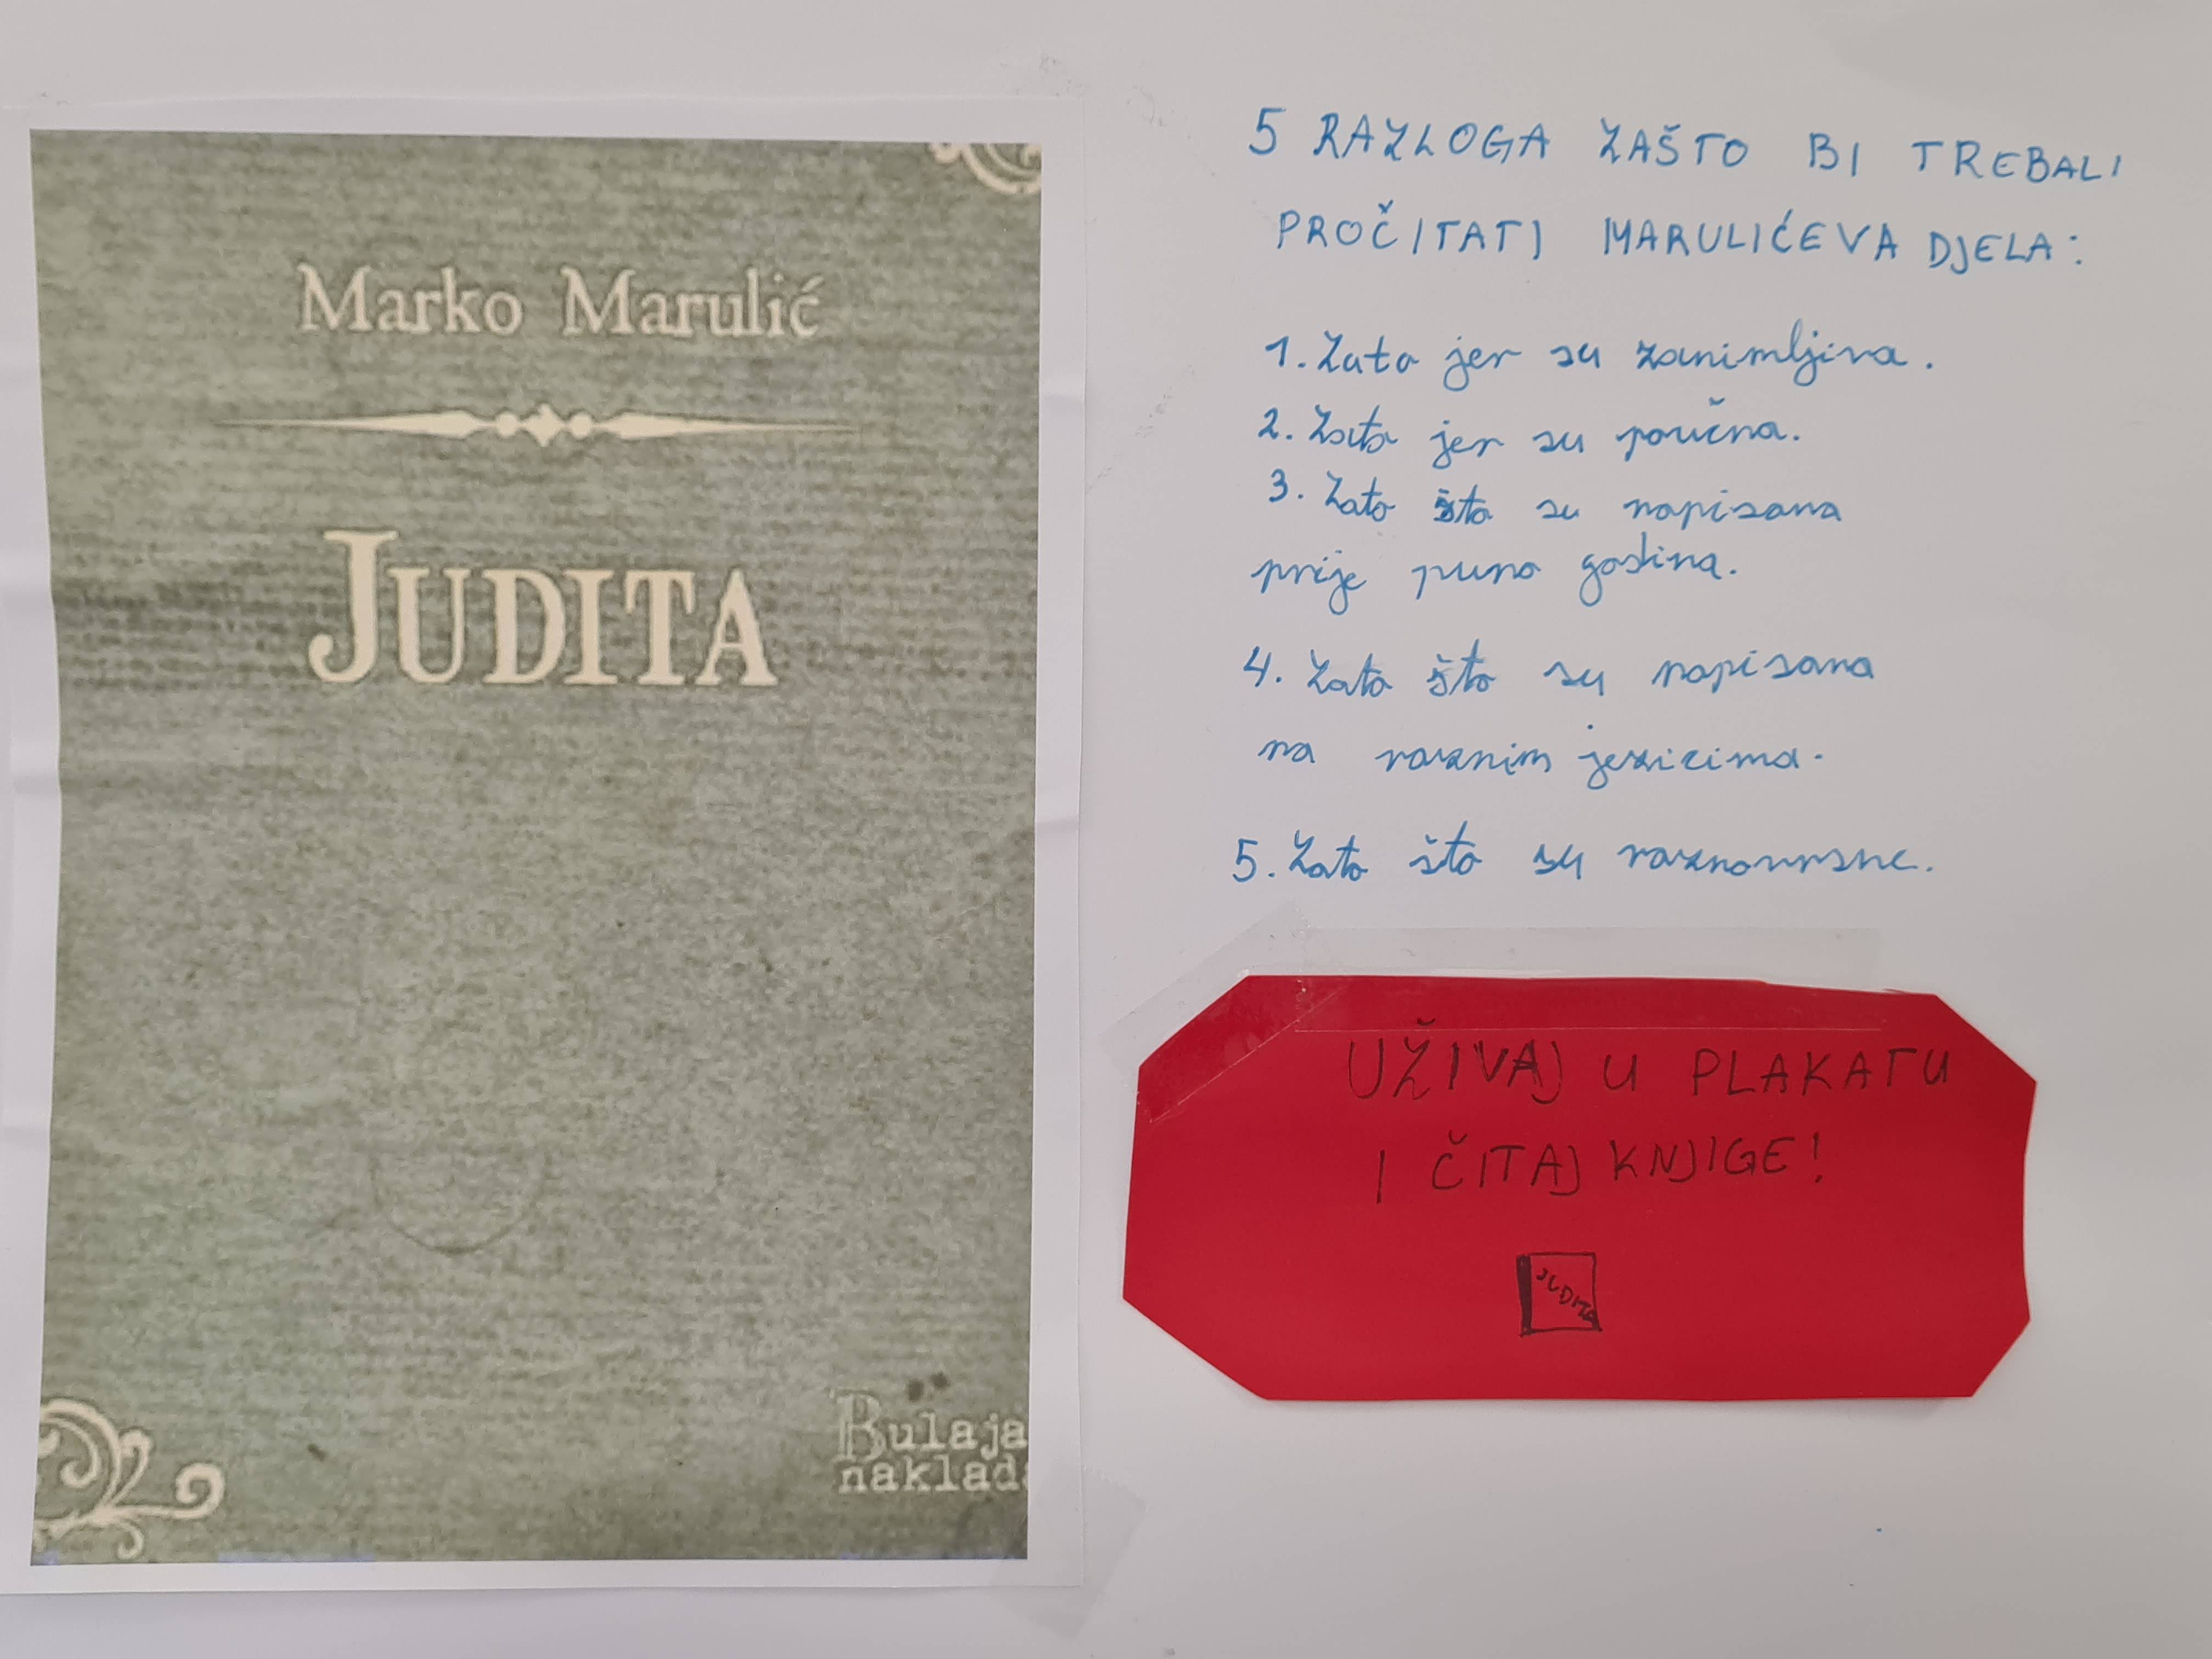 Marko Marulić
JUDITA
Bulaja
naklada
5 RAZLOGA ZAŠTO BI TREBALI
PROČITATI MARULIĆEVA DJELA:
1. Zato jer su zanimljiva.
2. Zato jer su poučna.
3. Zato što su napisana
prije puno godina.
4. Zato što su napisana
na raznim jezicima.
5. Zato što su raznovrsne.
UŽIVAJ U PLAKATU
I ČITAJ KNJIGE!
JUDITA